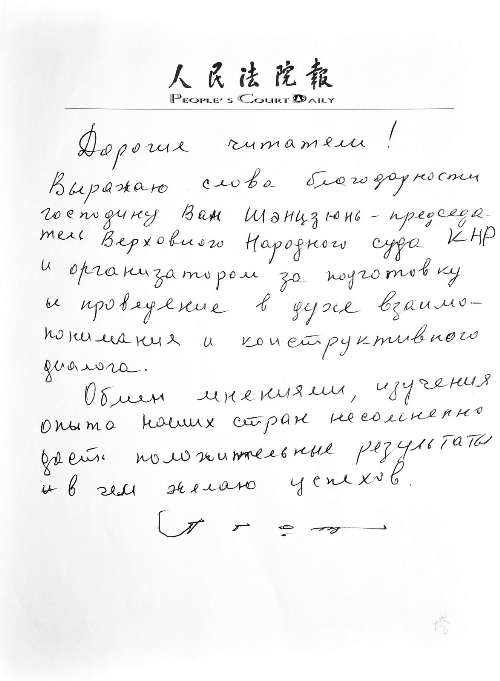 人民法院報
PEOPLE'S COURT DAILY
Дорогие читатели!
Выражаю слова благодарности
господину Ван Шэнцзюнь - председа-
тель Верховного Народного суда КНР
и организатором за подготовку
и проведение в духе взаимо-
понимания и конструктивного
диалога.
Обмен мнениями, изучения
опыта наших стран несомненно
даст положительные результаты
и в чем желаю успехов.